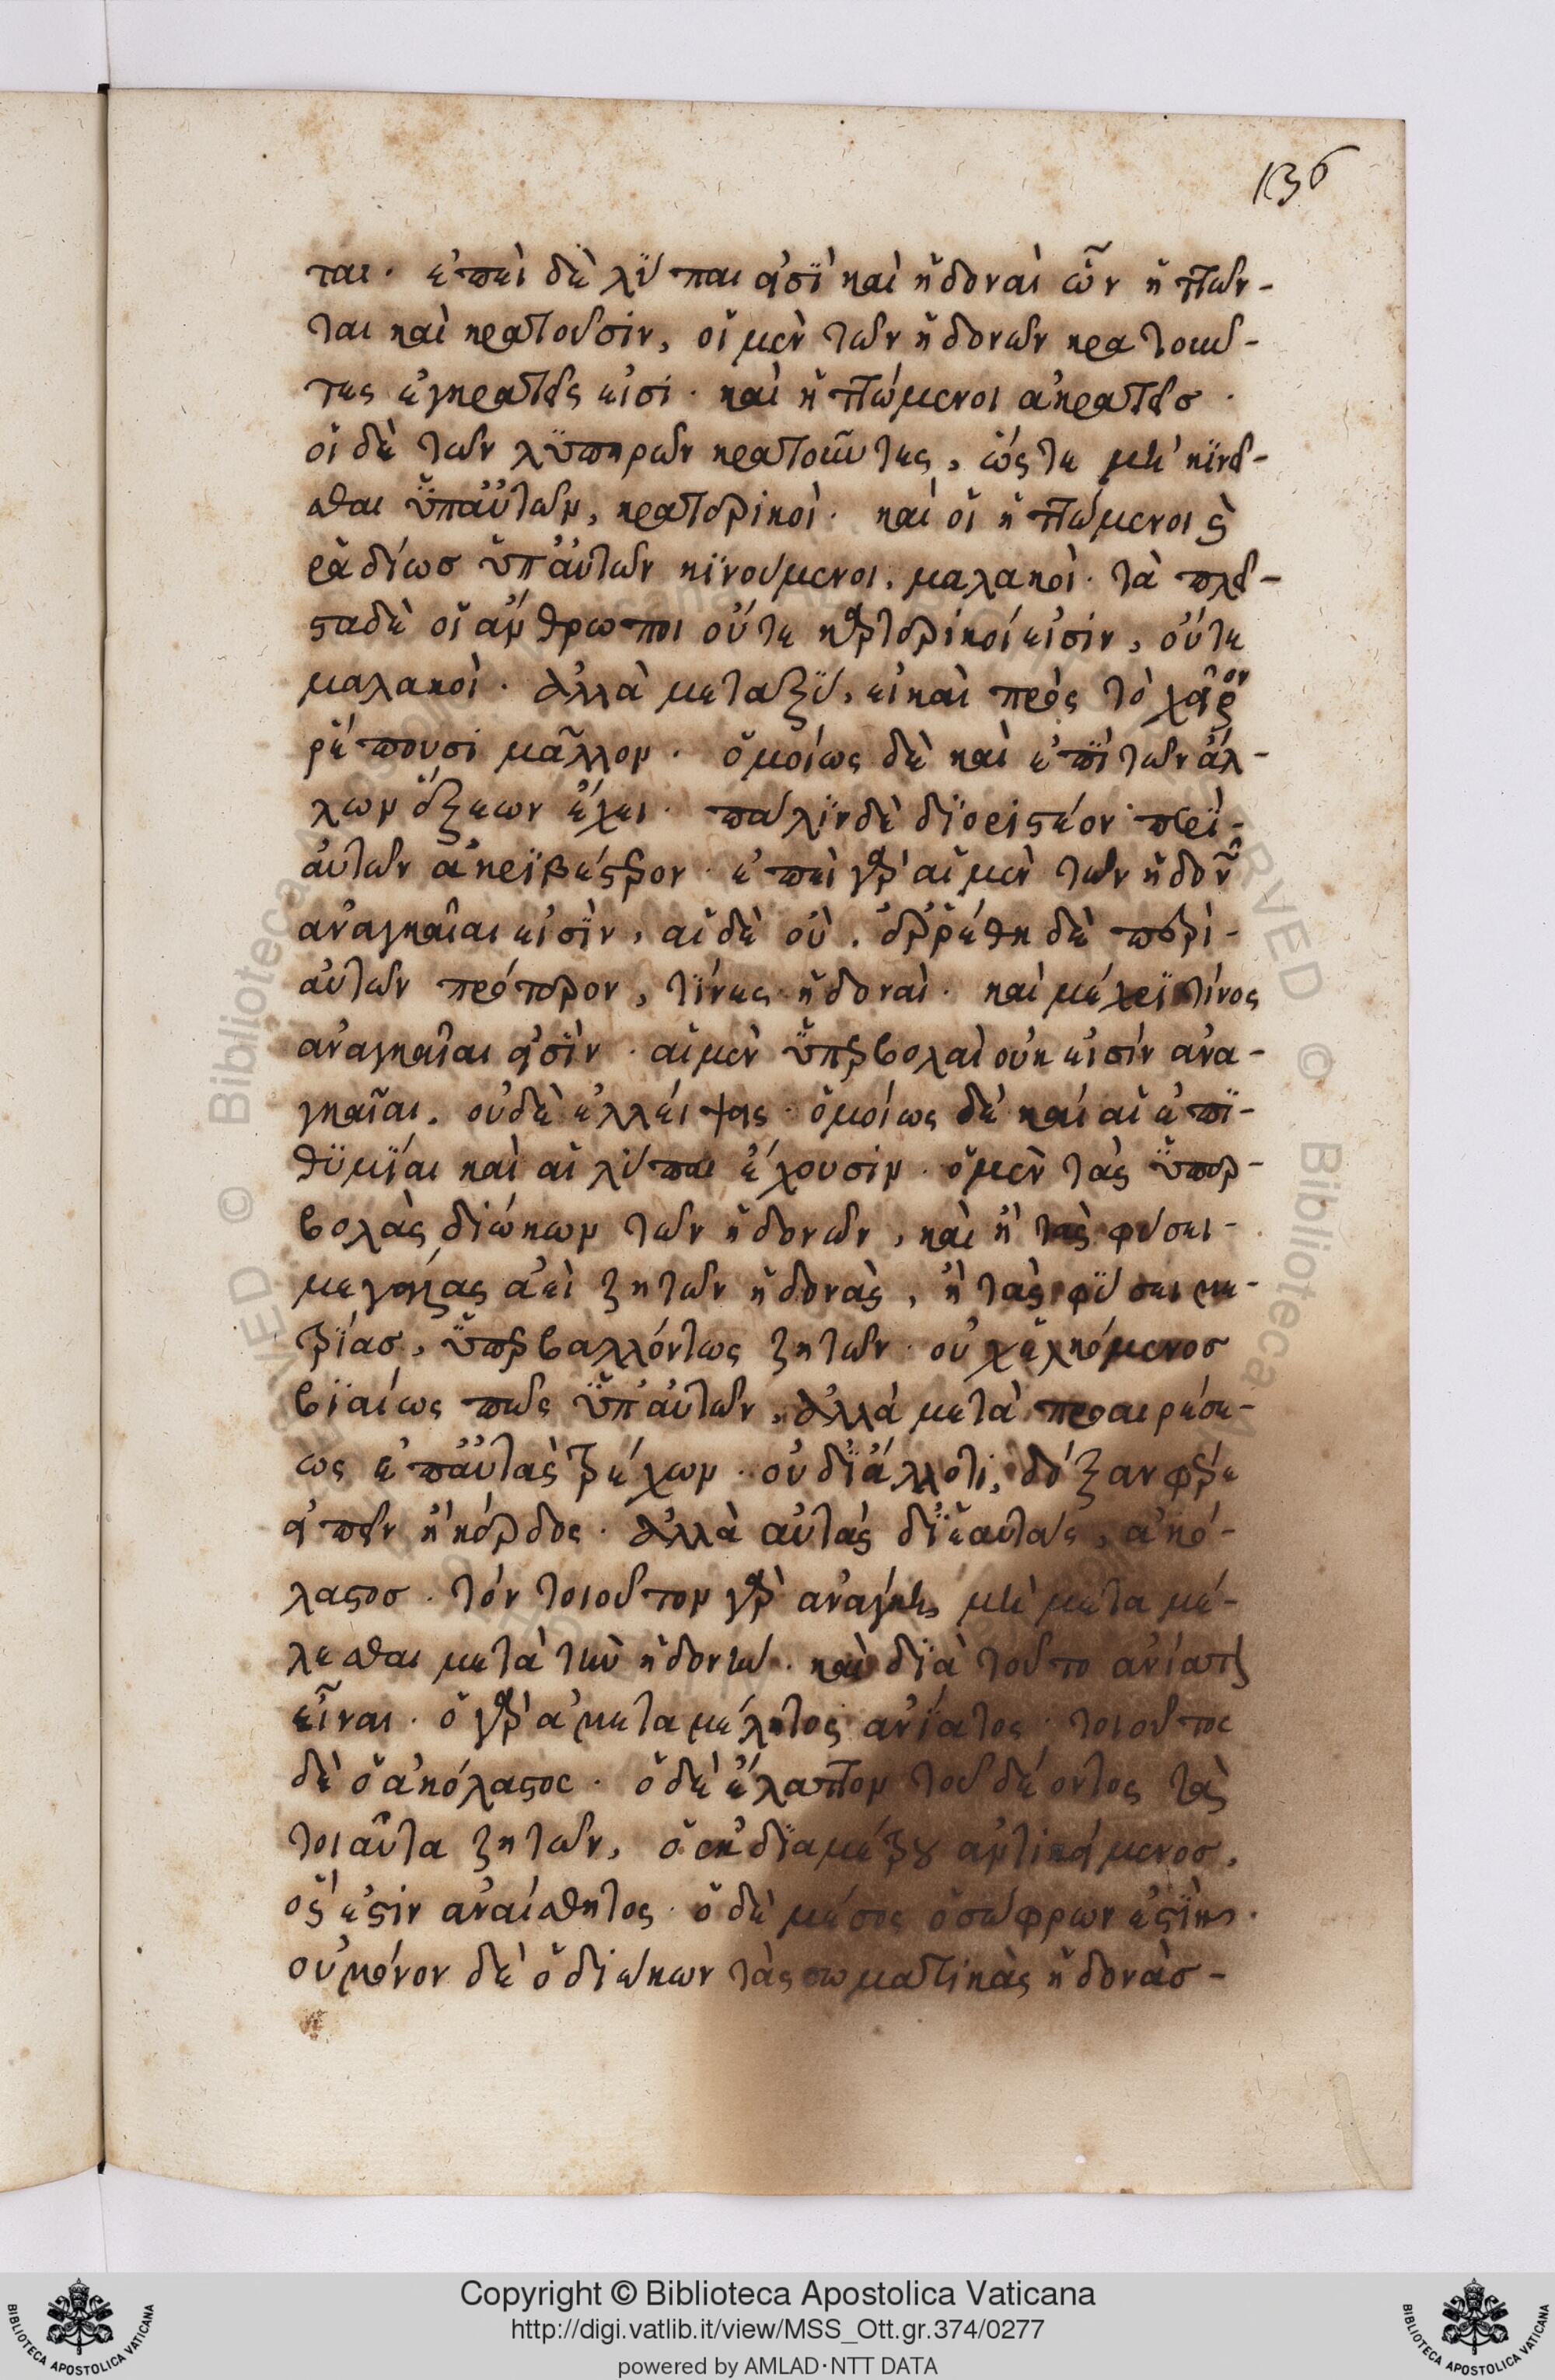 136
ται· ἐπεὶ δὲ λύπαι εἰσὶ καὶ ἡδοναὶ ὧν ἡττῶν-
ται καὶ κρατοῦσιν, οἱ μὲν τῶν ἡδονῶν κρατοῦν-
τες ἐγκρατεῖς εἰσι· καὶ ἡττώμενοι ἀκρατεῖσ·
οἱ δὲ τῶν λυπηρῶν κρατοῦντες, ὥς τε μὴ κινεῖ-
σθαι ὑπ' αὐτῶν, κρατερικοὶ· καὶ οἱ ἡττώμενοι καὶ
ῥαδίωσ ὑπ' αὐτῶν κινούμενοι, μαλακοὶ· τὰ πλεῖ-
στα δὲ οἱ ἄνθρωποι οὔτε καρτερικοί εἰσιν, οὔτε
μαλακοὶ· ἀλλὰ μεταξὺ, εἰ καὶ πρὸς τὸ χεῖρον
ῥέπουσι μᾶλλον· ὁμοίως δὲ καὶ ἐπὶ τῶν ἄλ-
λων ἕξεων ἔχει· πάλιν δὲ διοριστέον περὶ-
αὐτῶν ἀκριβέστερον· ἐπεὶ γὰρ αἱ μὲν τῶν ἡδονῶν
ἀναγκαῖαι εἰσὶν, αἱ δὲ οὐ, ἐρρέθη δὲ περὶ-
αὐτῶν πρότερον, τίνες ἡδοναὶ· καὶ μέχρι τίνος
ἀναγκαῖαι εἰσὶν· αἱ μὲν ὑπερβολαὶ οὐκ εἰσὶν ἀνα-
γκαῖαι, οὐδὲ ἐλλείψεις· ὁμοίως δὲ καὶ αἱ ἐπι-
θυμίαι καὶ αἱ λύπαι ἔχουσιν· ὁ μὲν τὰς ὑπερ-
βολὰς διώκων τῶν ἡδονῶν, καὶ ἢ τὰς φύσει-
μεγάλας ἀεὶ ζητῶν ἡδονὰς, ἢ τὰς φύσει με-
τρίασ, ὑπερβαλλόντως ζητῶν· οὐχ ἑλκόμενοσ
βιαίως πως ὑπ' αὐτῶν, ἀλλὰ μετὰ προαιρέσε-
ως ἐπ' αὐτὰς τρέχων· οὐ δι' ἄλλό τι, δόξαν φέρε
εἰπεῖν ἢ κέρδος· ἀλλὰ αὐτὰς δι' ἑαυτάς, ἀκό-
λαστοσ· τὸν τοιοῦτον γὰρ ἀνάγκη μὴ μεταμέ-
λεσθαι μετὰ τὴν ἡδονὴν· καὶ διὰ τοῦτο ἀνίατον
εἶναι· ὁ γὰρ ἀμεταμέλητος ἀνίατος· τοιοῦτος
δὲ ὁ ἀκόλαστος· ὁ δὲ ἔλαττον τοῦ δέοντος τὰ
τοιαῦτα ζητῶν, ὁ ἐκ διαμέτρου ἀντικείμενοσ,
ὅς ἐστιν ἀναίσθητος· ὁ δὲ μέσος ὁ σώφρων ἐστίν·
οὐ μόνον δὲ ὁ διώκων τὰς σωματικὰς ἡδονὰσ-
Copyright © Biblioteca Apostolica Vaticana
http://digi.vatlib.it/view/MSS_Ott.gr.374/0277
powered by AMLAD·NTT DATA